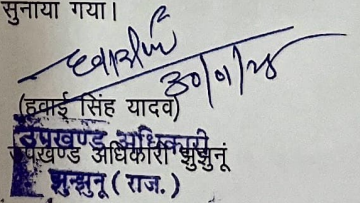 सुनाया गया।
30/9/24
(हवाई सिंह यादव)
उपखण्ड अधिकारी
उपखण्ड अधिकारी झुंझुनूं
झुन्झुनू (राज.)